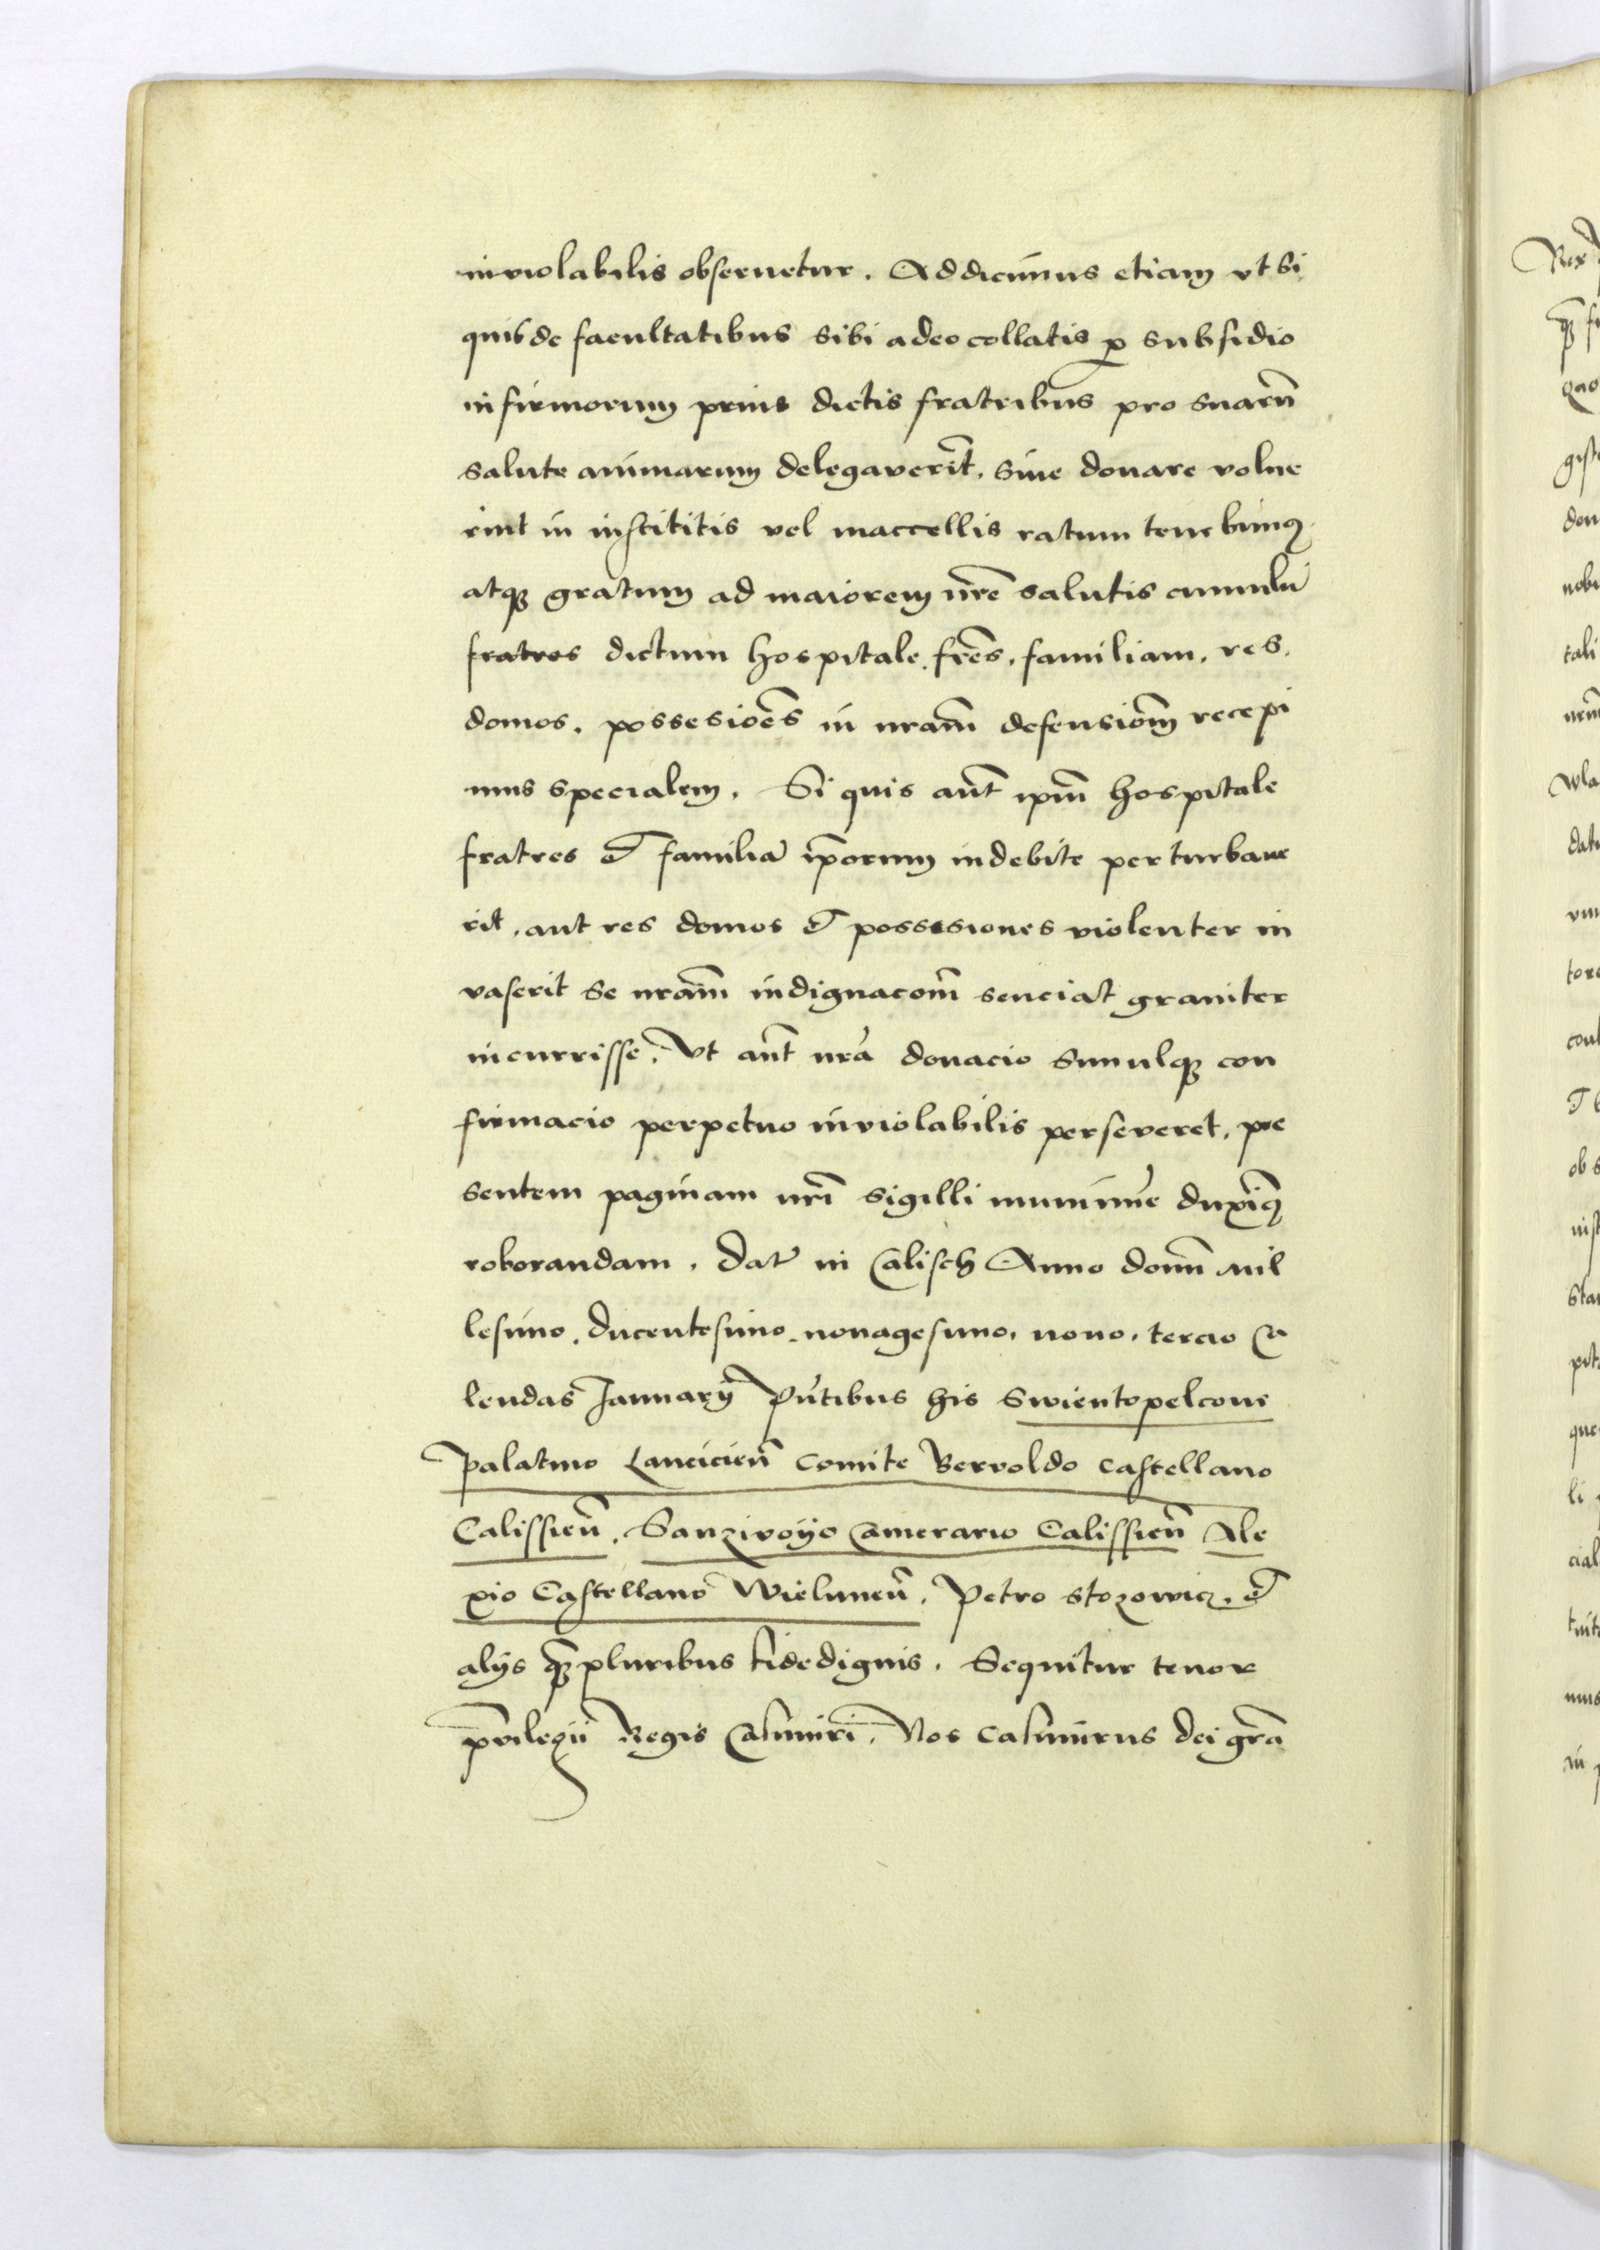 inviolabilis obseruetur. Addicimus etiam vt si
quis de facultatibus sibi a deo collatis p subsidio
infirmorum prius dictis fratribus pro suarū
salute animarum delegaverīt. siue donare volue
rint in instititis vel maccellis ratum tenebimꝰ
atqꝫ gratum ad maiorem nr̄e salutis cumulū
fratres dictum hospitale fr̄es. familiam. res.
domos. possesiōēs in nr̄am̄ defensiōm̄ recepi
mus specialem. Si quis aūt ip̄m̄ hospitale
fratres et familiā ip̄orum indebite perturbaue
rit. aut res domos et possesiones violenter in
vaserit se nr̄am̄ indignacōm̄ senciat grauiter
incurrisse. Vt aūt nr̄a donacio simulqꝫ con
firmacio perpetuo inviolabilis perseveret. pre
sentem paginam nr̄i sigilli munimīe duxīꝰ
roborandam. dat̄ in Calisch Anno domī mil
lesimo. ducentesimo. nonagesimo. nono. tercio Ca
lendas January Pn̄tibus his Swientopelcone
Palatino Lancicien̄ comite Bervoldo castellano
Calissien̄. Sanzivoyo Camerario Calissien̄ Ale
xio Castellano Wielunen̄. Petro stozowicz. et
alys qꝫ pluribus fidedignis. Sequitur tenor
pr̄ilegii Regis Casimiri. Nos Casimirus dei gr̄a